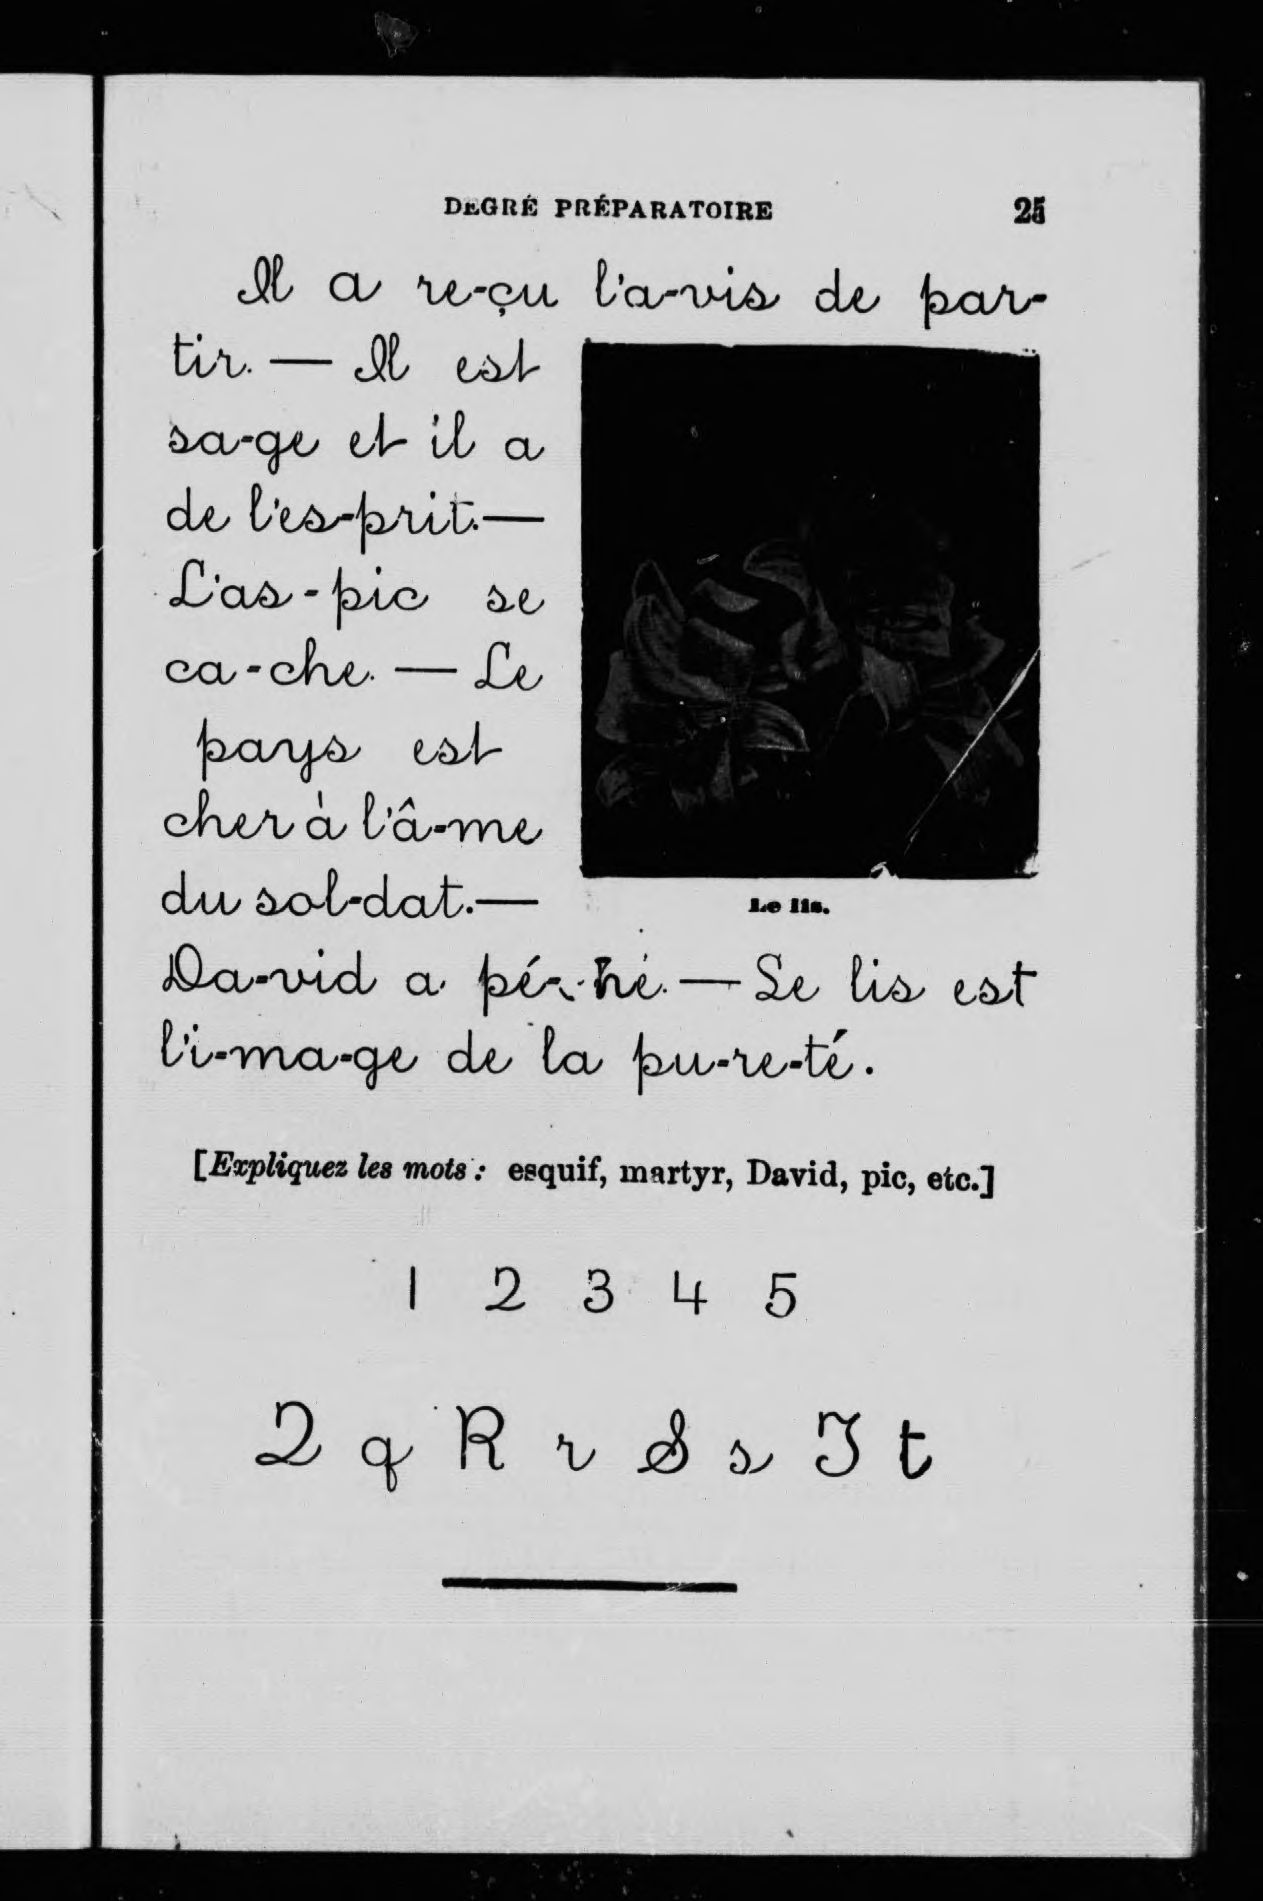 DEGRÉ PRÉPARATOIRE 25
Il a re-çu l'a-vis de par-
tir. — Il est
sa-ge et il a
de l'es-prit. —
L'as-pic se
ca-che. — Le
pays est
cher à l'â-me
du sol-dat. —
Le lis.
Da-vid a pé-ché. — Le lis est
l'i-ma-ge de la pu-re-té.
[Expliquez les mots : esquif, martyr, David, pic, etc.]
1 2 3 4 5
Q q R r S s T t